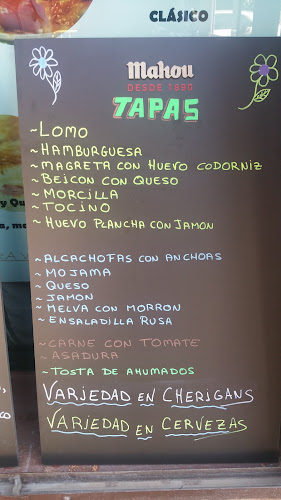 CLÁSICO
Mahou
DESDE 1890
TAPAS
~LOMO
~HAMBURGUESA
~MAGRETA CON HUEVO CODORNIZ
~BEICON CON QUESO
~MORCILLA
~TOCINO
~HUEVO PLANCHA CON JAMON
~ALCACHOFAS CON ANCHOAS
~MOJAMA
~QUESO
~JAMON
~MELVA CON MORRON
~ENSALADILLA RUSA
~CARNE CON TOMATE
~ASADURA
~TOSTA DE AHUMADOS
VARIEDAD EN CHERIGANS
VARIEDAD EN CERVEZAS